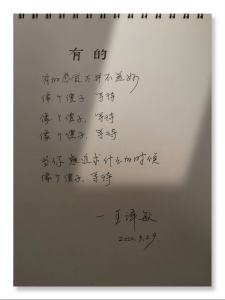 有的
有的感觉它并不美好
像个傻子，等待
像个傻子，等待
像个傻子，等待
当你想追求什么的时候
像个傻子，等待
一 王译敏
2020.9.29